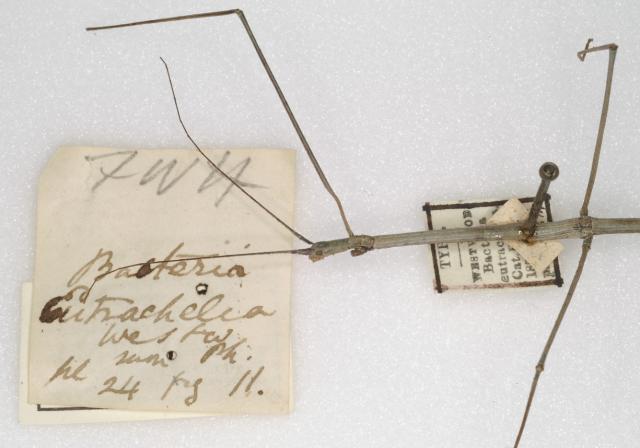 FWH
Bacteria
Eutrachelia
Westw.
mon Ph.
pl 24 fig 11.
TYPE
WESTWOOD
Bact
eutrac
Cat
18